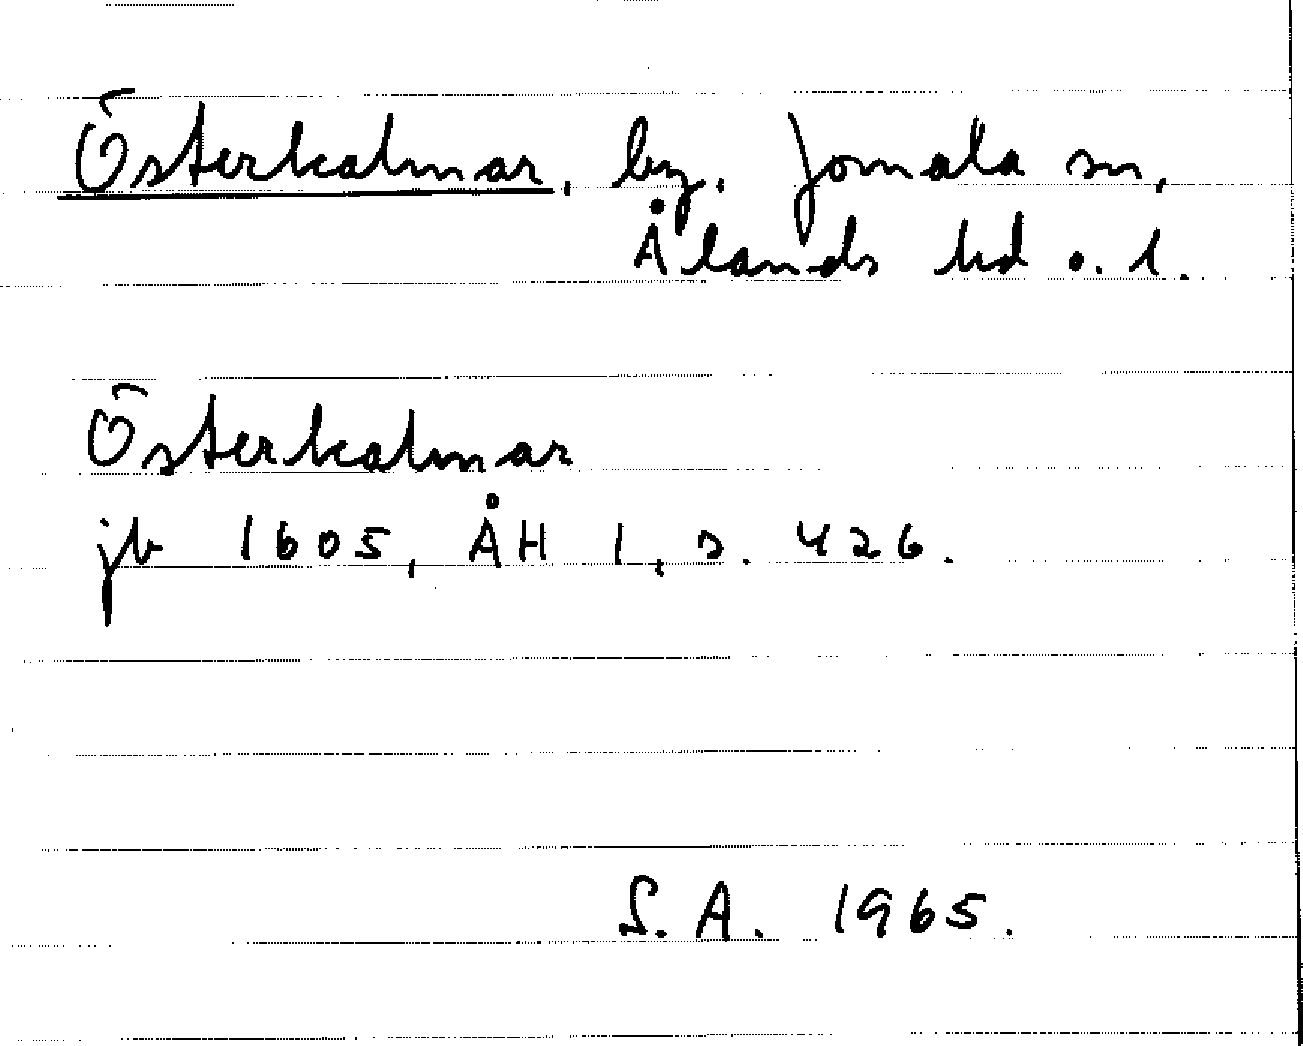 Österkalmar, by, Jomala sn,
Ålands hd o. l.
Österkalmar
jb 1605, ÅH 1, s. 426.
S.A. 1965.